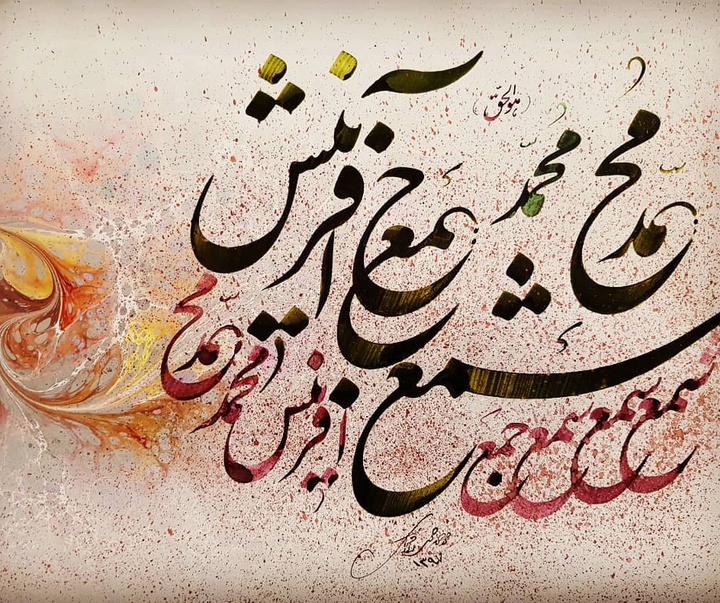 هوالحق
محمد محمد
شمع جمع آفرینش
شمع شمع شمع جمع آفرینش محمد محمد
۱۳۹۷